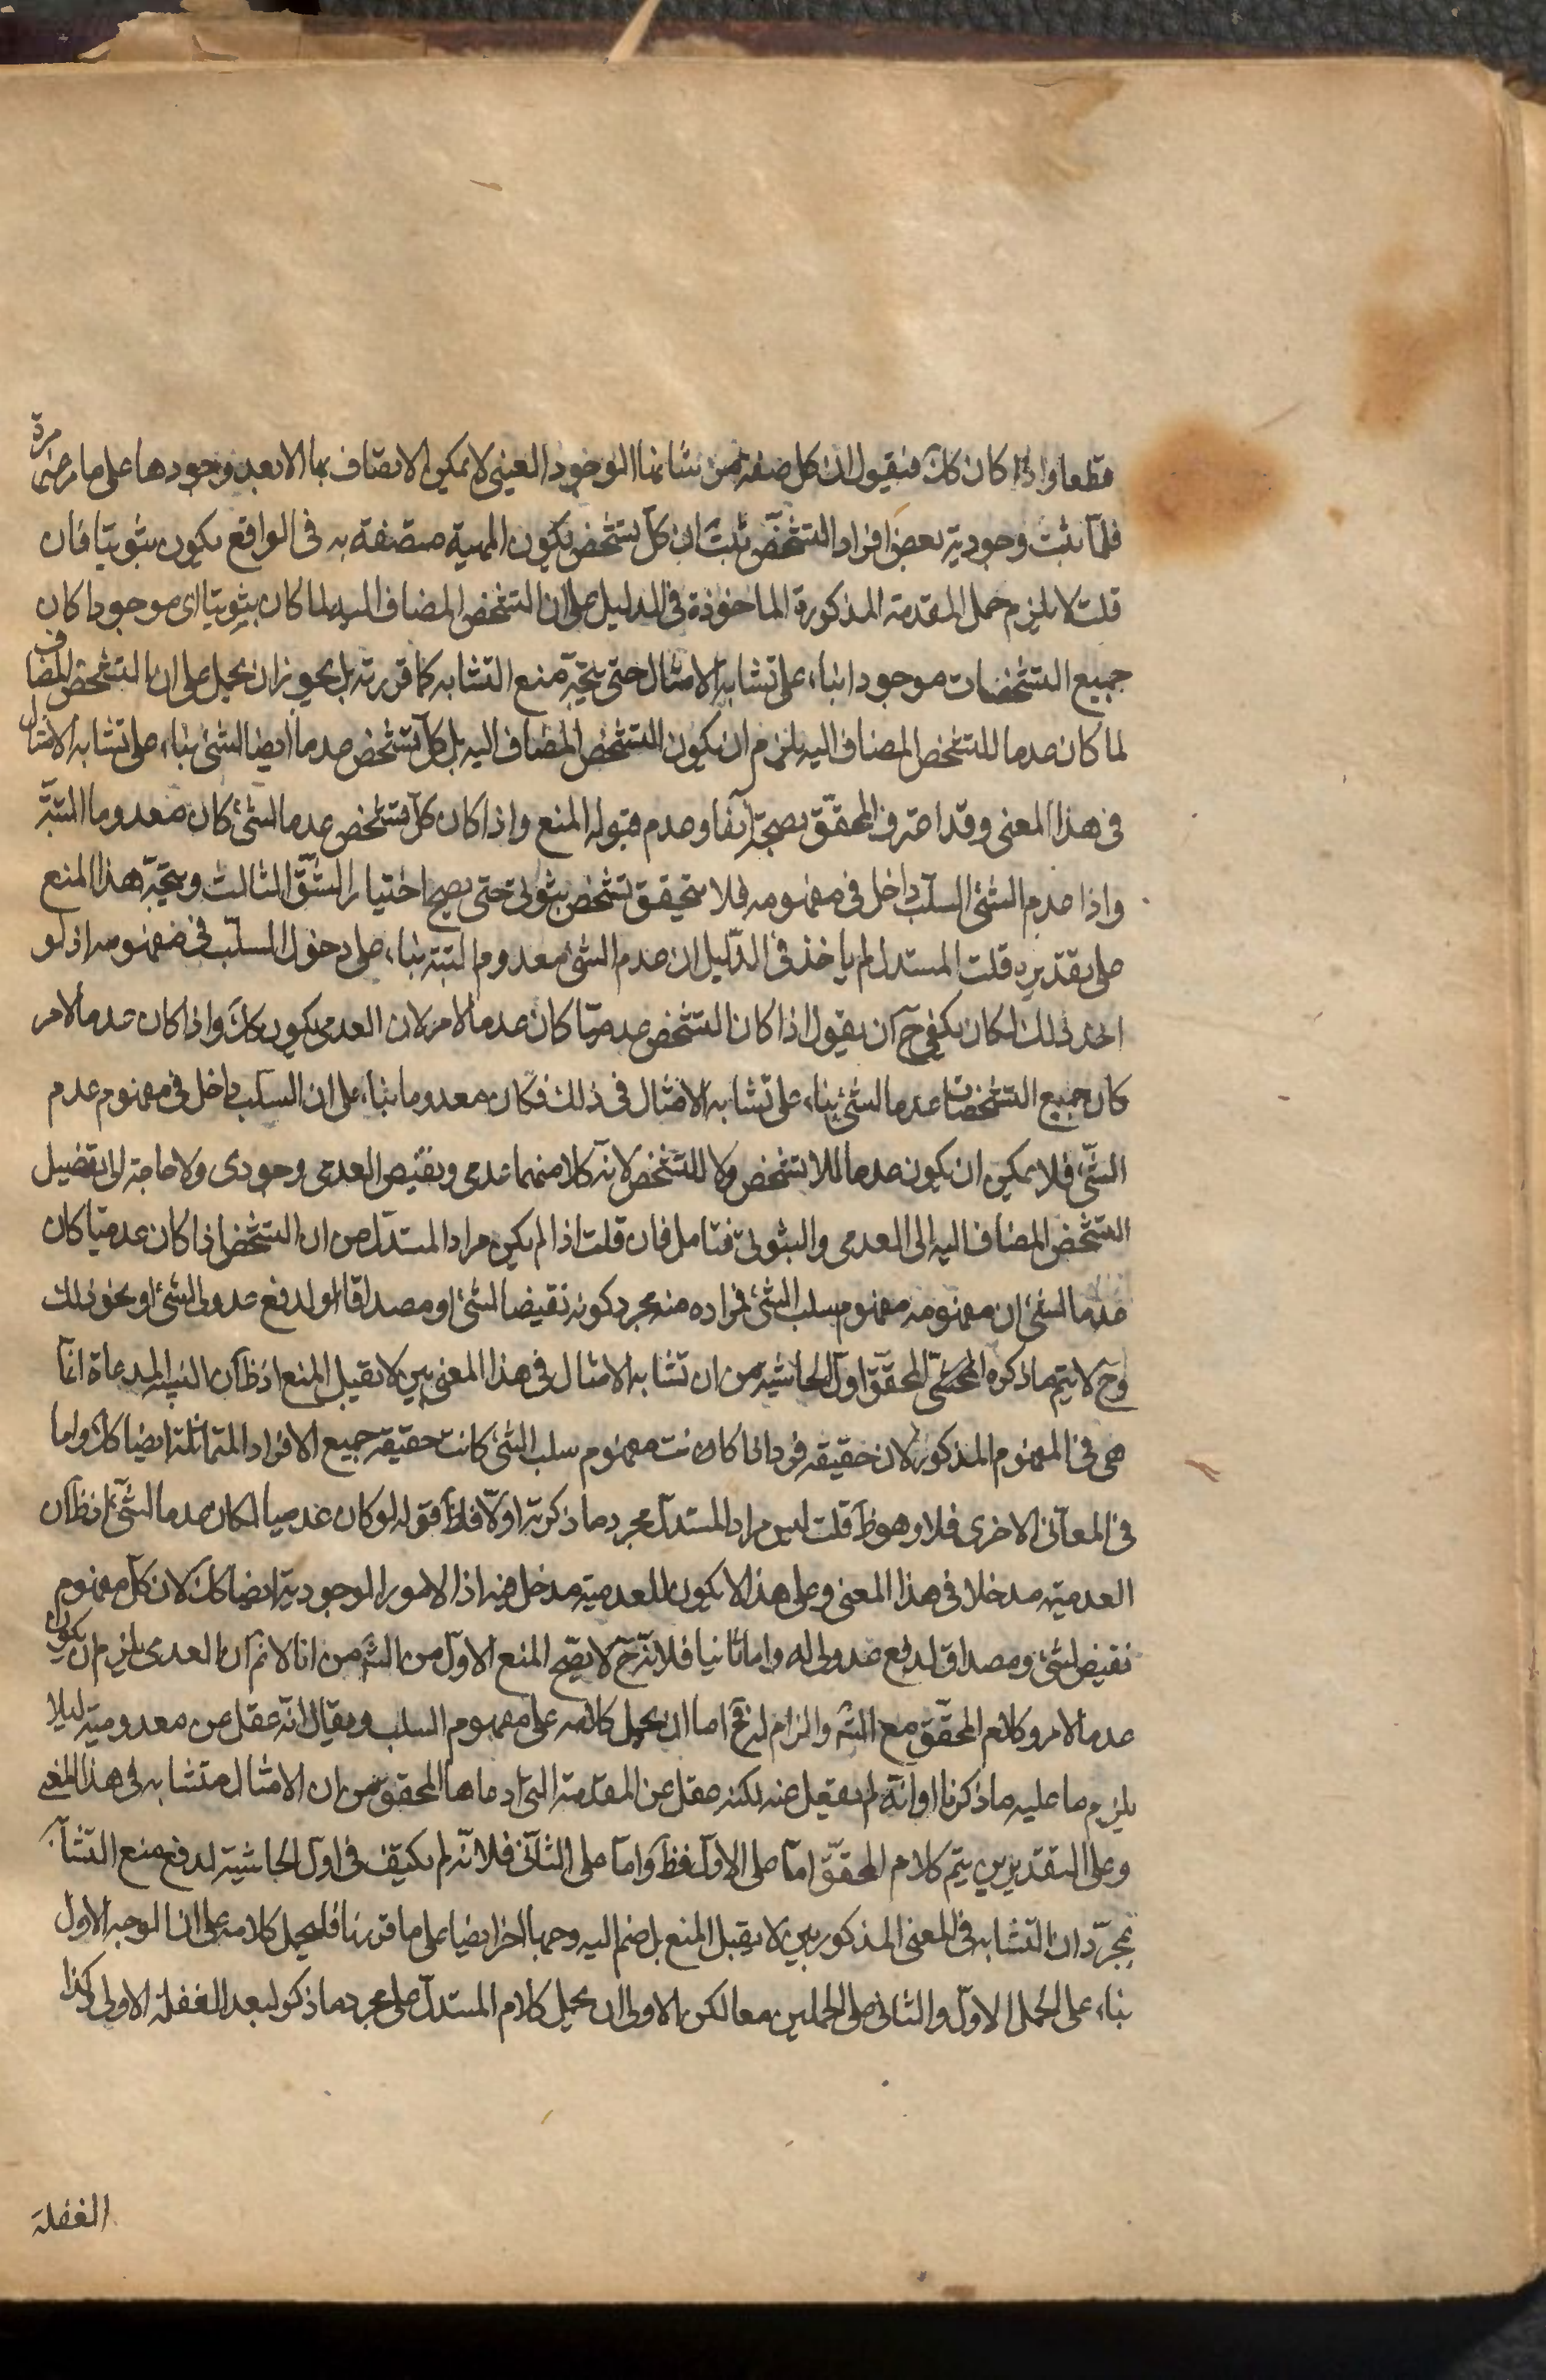 قطعا واذا كان كك فنقول ان كل صفة من شانها الوجود العينى لا يمكن الاتصاف بها الا بعد وجودها على ما مر غير مرة
فلما ثبت وجودية بعض افراد التشخص ثبت ان كل تشخص يكون المهية متصفة به فى الواقع يكون ثبوتيا فان
قلت لا يلزم حمل المقدمة المذكورة الماخوذة فى الدليل على ان التشخص المضاف اليه لما كان ثبوتيا اى موجودا كان
جميع التشخصات موجودا بناء على تشابه الامثال حتى يتجه منع التشابه كما قررته بل يجوز ان يحمل على ان التشخص المضاف
لما كان عدما للتشخص المضاف اليه يلزم ان يكون التشخص المضاف اليه بل كل تشخص عدما ايضا لشئ بناء على تشابه الامثال
فى هذا المعنى وقد اعترف المحقق بصحته آنفا وعدم قبوله المنع واذا كان كل تشخص عدما لشئ كان معدوما البتة
واذا عدم الشئ السلب داخل فى مفهومه فلا يتحقق تشخص ثبوتى حتى يصح اختيار الشق الثالث ويتجه هذا المنع
على تقديره قلت المستدل لم ياخذ فى الدليل ان عدم الشئ معدوم البتة بناء على دخول السلب فى مفهومه اذ لو
اخذ ذلك لكان يكفى ح ان يقول اذا كان التشخص عدميا كان عدما لامر لان العدمى يكون كك واذا كان عدما لامر
كان جميع التشخصات عدما لشئ بناء على تشابه الامثال فى ذلك فكان معدوما بناء على ان السلب داخل فى مفهوم عدم
الشئ فلا يمكن ان يكون عدما للا تشخص ولا للتشخص لانه كلا منهما عدمى ونقيض العدمى وجودى ولا حاجة الى تفصيل
التشخص المضاف اليه الى العدمى والثبوتى فتامل فان قلت اذا لم يكن مراد المستدل من ان التشخص اذا كان عدميا كان
عدما لشئ ان مفهومه مفهوم سلب الشئ فمراده منه مجرد كونه نقيضا لشئ او مصداقا او لدفع عدولى الشئ او نحو ذلك
وح لا يتم ما ذكره المحشى المحقق اول الحاشية من ان تشابه الامثال فى هذا المعنى بين لا يقبل المنع اذ ظ ان البينة المدعاة انما
هى فى المفهوم المذكور لان حقيقة فرد اذا كانت مفهوم سلب الشئ كانت حقيقة جميع الافراد المتماثلة ايضا كك واما
فى المعانى الاخرى فلا وهو ظ قلت ليس مراد المستدل مجرد ما ذكرته اولا فلظ قوله لو كان عدميا لكان عدما لشئ اذ ظ ان
العدمية مدخلا فى هذا المعنى وعلى هذا لا يكون للعدمية مدخل فيه اذ الامور الوجودية ايضا كك لان كل مفهوم
نقيض لشئ ومصداق لدفع عدولى له واما ثانيا فلانه ح لا يصح المنع الاول من الشم من انا لا نم ان العدمى يلزم ان يكون
عدما لامر وكلام المحقق مع الشم والزام له فح اما ان يحمل كلامه على مفهوم السلب ويقال انه غفل عن معدوميته لئلا
يلزم ما عليه ما ذكرنا او انه لم يغفل عنه لكنه غفل عن المقدمة التى ادعاها المحقق من ان الامثال متشابه فى هذا المعنى
وعلى التقديرين يتم كلام المحقق اما على الاول فظ واما على الثانى فلانه لم يكتف فى اول الحاشية لدفع منع التشابه
بمجرد ان التشابه فى المعنى المذكور بين لا يقبل المنع بل ضم اليه وجها اخر ايضا على ما قررنا فليحمل كلامه على ان الوجه الاول
بناء على الحمل الاول والثانى على الحملين معا لكن الاولى ان يحمل كلام المستدل على مجرد ما ذكر لبعد الغفلة الاولى وكذا
الغفلة